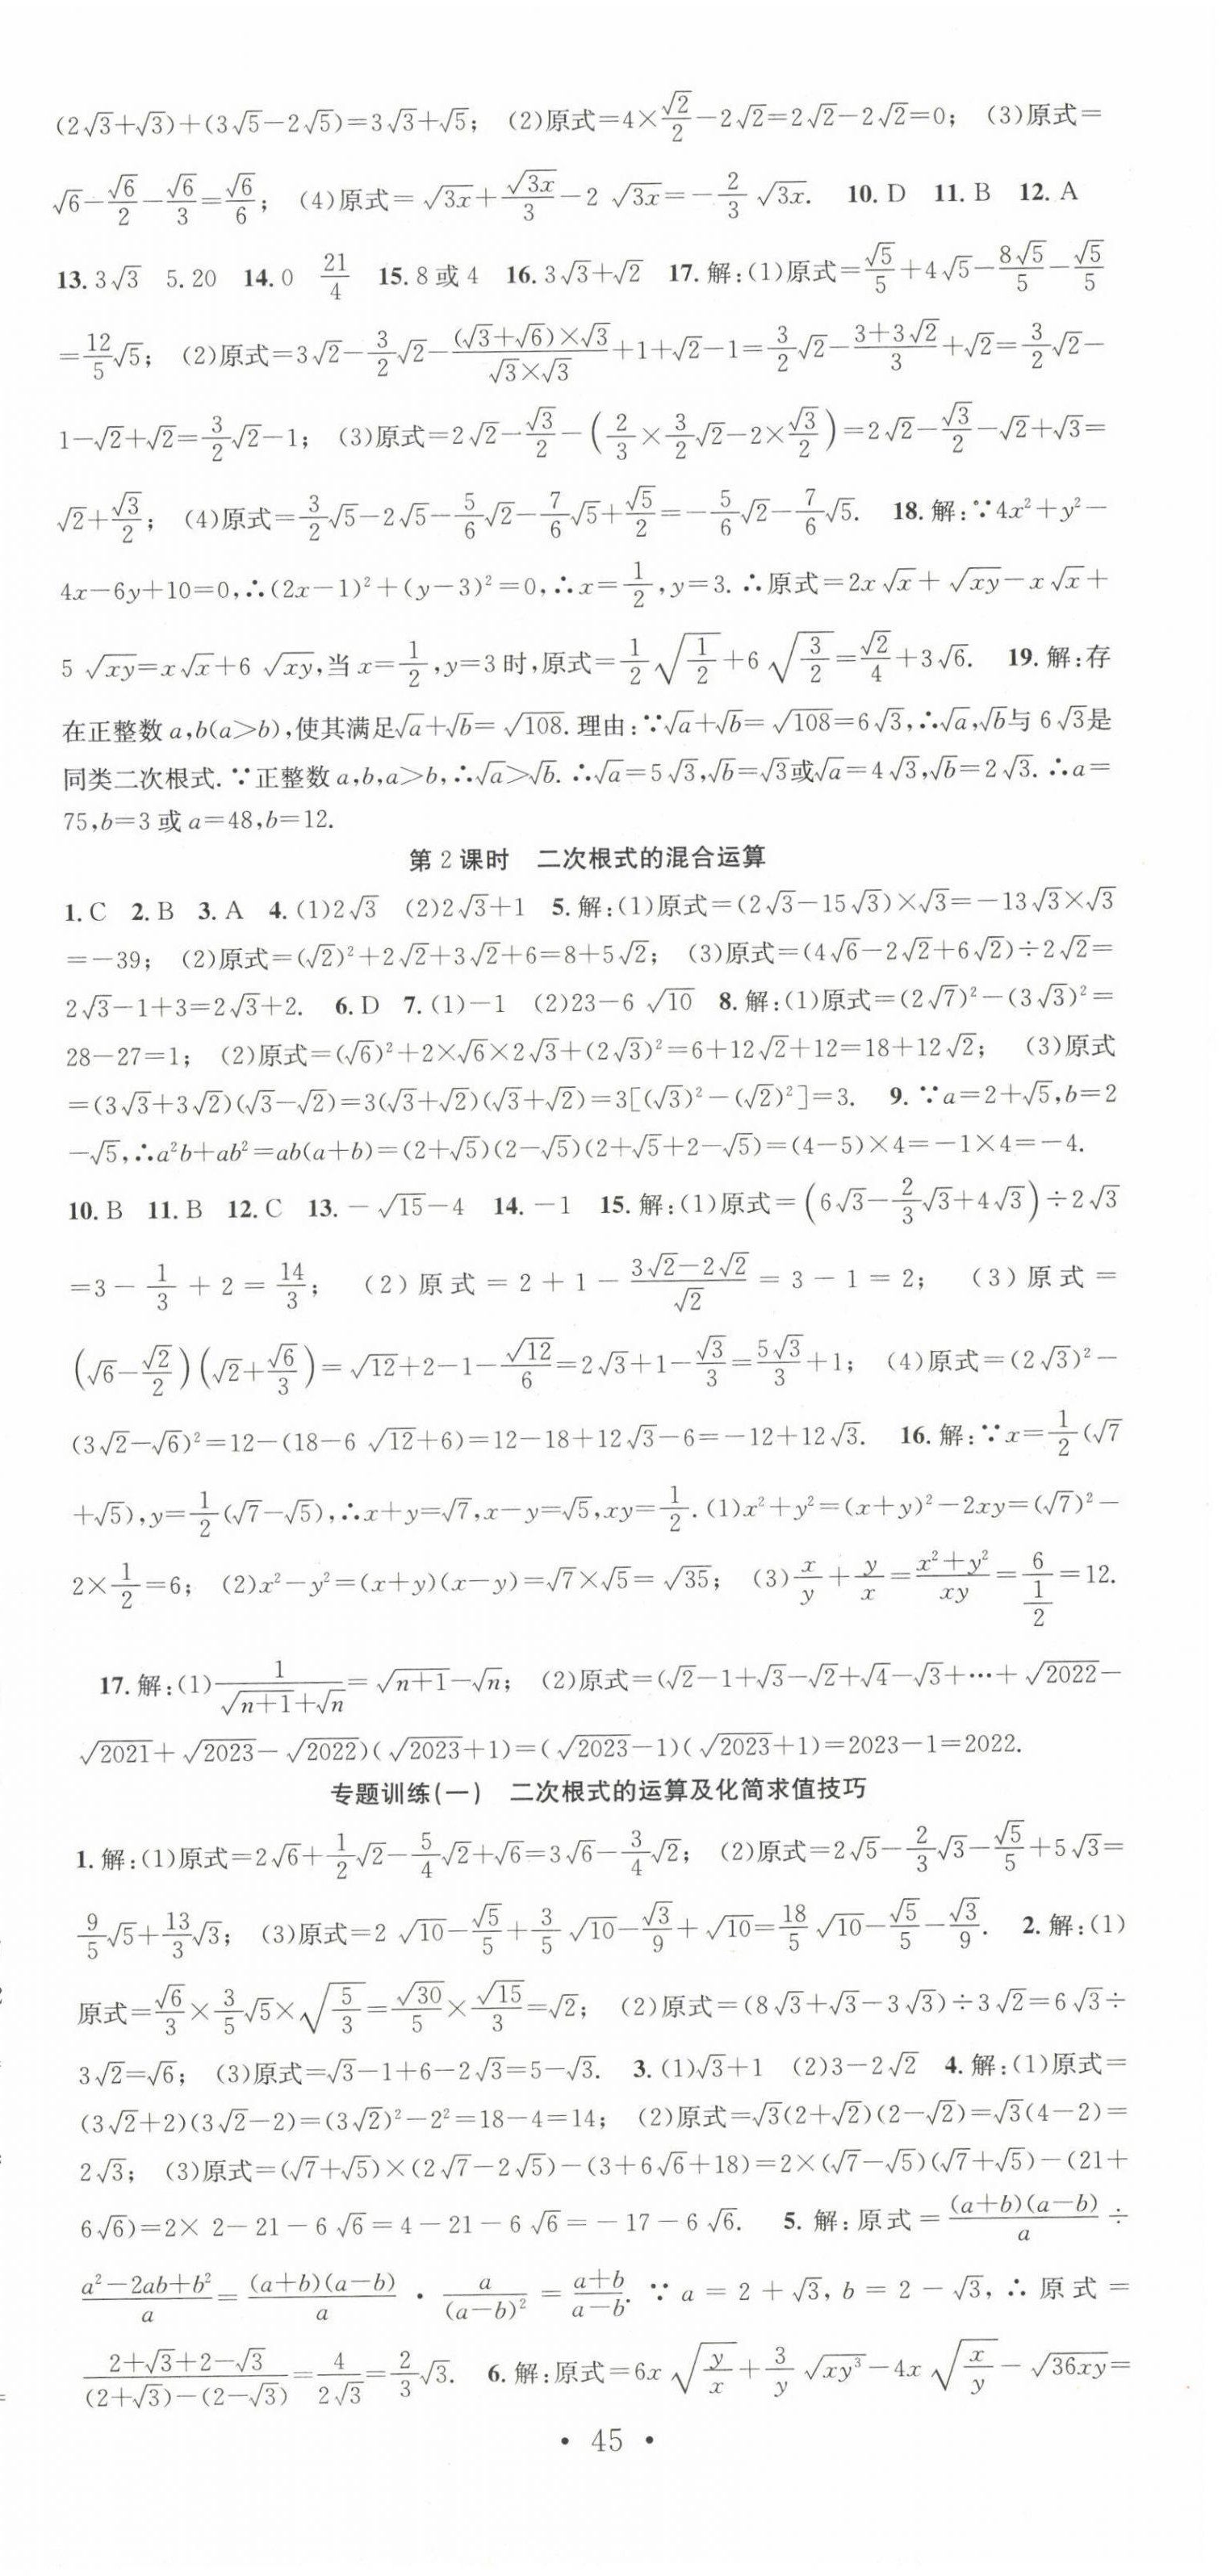 (2√3+√3)+(3√5-2√5)=3√3+√5; (2)原式=4×√2/2-2√2=2√2-2√2=0; (3)原式=
√6-√6/2-√6/3=√6/6; (4)原式=√(3x)+√(3x)/3-2√(3x)=-2/3√(3x). 10. D 11. B 12. A
13. 3√3 5.20 14. 0 21/4 15. 8或4 16. 3√3+√2 17. 解:(1)原式=√5/5+4√5-8√5/5-√5/5
=12/5√5; (2)原式=3√2-3/2√2-(√3+√6)×√3/(√3×√3)+1+√2-1=3/2√2-(3+3√2)/3+√2=3/2√2-
1-√2+√2=3/2√2-1; (3)原式=2√2-√3/2-(2/3×3/2√2-2×√3/2)=2√2-√3/2-√2+√3=
√2+√3/2; (4)原式=3/2√5-2√5-5/6√2-7/6√5+√5/2=-5/6√2-7/6√5. 18. 解:∵4x²+y²-
4x-6y+10=0,∴(2x-1)²+(y-3)²=0,∴x=1/2,y=3. ∴原式=2x√x+√(xy)-x√x+
5√(xy)=x√x+6√(xy),当x=1/2,y=3时,原式=1/2√(1/2)+6√(3/2)=√2/4+3√6. 19. 解:存
在正整数a,b(a>b),使其满足√a+√b=√108. 理由:∵√a+√b=√108=6√3,∴√a,√b与6√3是
同类二次根式. ∵正整数a,b,a>b,∴√a>√b. ∴√a=5√3,√b=√3或√a=4√3,√b=2√3. ∴a=
75,b=3或a=48,b=12.
第2课时 二次根式的混合运算
1. C 2. B 3. A 4. (1)2√3 (2)2√3+1 5. 解:(1)原式=(2√3-15√3)×√3=-13√3×√3
=-39; (2)原式=(√2)²+2√2+3√2+6=8+5√2; (3)原式=(4√6-2√2+6√2)÷2√2=
2√3-1+3=2√3+2. 6. D 7. (1)-1 (2)23-6√10 8. 解:(1)原式=(2√7)²-(3√3)²=
28-27=1; (2)原式=(√6)²+2×√6×2√3+(2√3)²=6+12√2+12=18+12√2; (3)原式
=(3√3+3√2)(√3-√2)=3(√3+√2)(√3+√2)=3[(√3)²-(√2)²]=3. 9. ∵a=2+√5,b=2
-√5,∴a²b+ab²=ab(a+b)=(2+√5)(2-√5)(2+√5+2-√5)=(4-5)×4=-1×4=-4.
10. B 11. B 12. C 13. -√15-4 14. -1 15. 解:(1)原式=(6√3-2/3√3+4√3)÷2√3
=3-1/3+2=14/3; (2)原式=2+1-(3√2-2√2)/√2=3-1=2; (3)原式=
(√6-√2/2)(√2+√6/3)=√12+2-1-√12/6=2√3+1-√3/3=5√3/3+1; (4)原式=(2√3)²-
(3√2-√6)²=12-(18-6√12+6)=12-18+12√3-6=-12+12√3. 16. 解:∵x=1/2(√7
+√5),y=1/2(√7-√5),∴x+y=√7,x-y=√5,xy=1/2. (1)x²+y²=(x+y)²-2xy=(√7)²-
2×1/2=6; (2)x²-y²=(x+y)(x-y)=√7×√5=√35; (3)x/y+y/x=(x²+y²)/xy=6/(1/2)=12.
17. 解:(1)1/(√(n+1)+√n)=√(n+1)-√n; (2)原式=(√2-1+√3-√2+√4-√3+…+√2022-
√2021+√2023-√2022)(√2023+1)=(√2023-1)(√2023+1)=2023-1=2022.
专题训练(一) 二次根式的运算及化简求值技巧
1. 解:(1)原式=2√6+1/2√2-5/4√2+√6=3√6-3/4√2; (2)原式=2√5-2/3√3-√5/5+5√3=
9/5√5+13/3√3; (3)原式=2√10-√5/5+3/5√10-√3/9+√10=18/5√10-√5/5-√3/9. 2. 解:(1)
原式=√6/3×3/5√5×√(5/3)=√30/5×√15/3=√2; (2)原式=(8√3+√3-3√3)÷3√2=6√3÷
3√2=√6; (3)原式=√3-1+6-2√3=5-√3. 3. (1)√3+1 (2)3-2√2 4. 解:(1)原式=
(3√2+2)(3√2-2)=(3√2)²-2²=18-4=14; (2)原式=√3(2+√2)(2-√2)=√3(4-2)=
2√3; (3)原式=(√7+√5)×(2√7-2√5)-(3+6√6+18)=2×(√7-√5)(√7+√5)-(21+
6√6)=2×2-21-6√6=4-21-6√6=-17-6√6. 5. 解:原式=(a+b)(a-b)/a÷
(a²-2ab+b²)/a=(a+b)(a-b)/a·a/(a-b)²=(a+b)/(a-b). ∵a=2+√3,b=2-√3,∴原式=
(2+√3+2-√3)/((2+√3)-(2-√3))=4/(2√3)=2/3√3. 6. 解:原式=6x√(y/x)+3/y√(xy³)-4x√(x/y)-√(36xy)=
· 45 ·